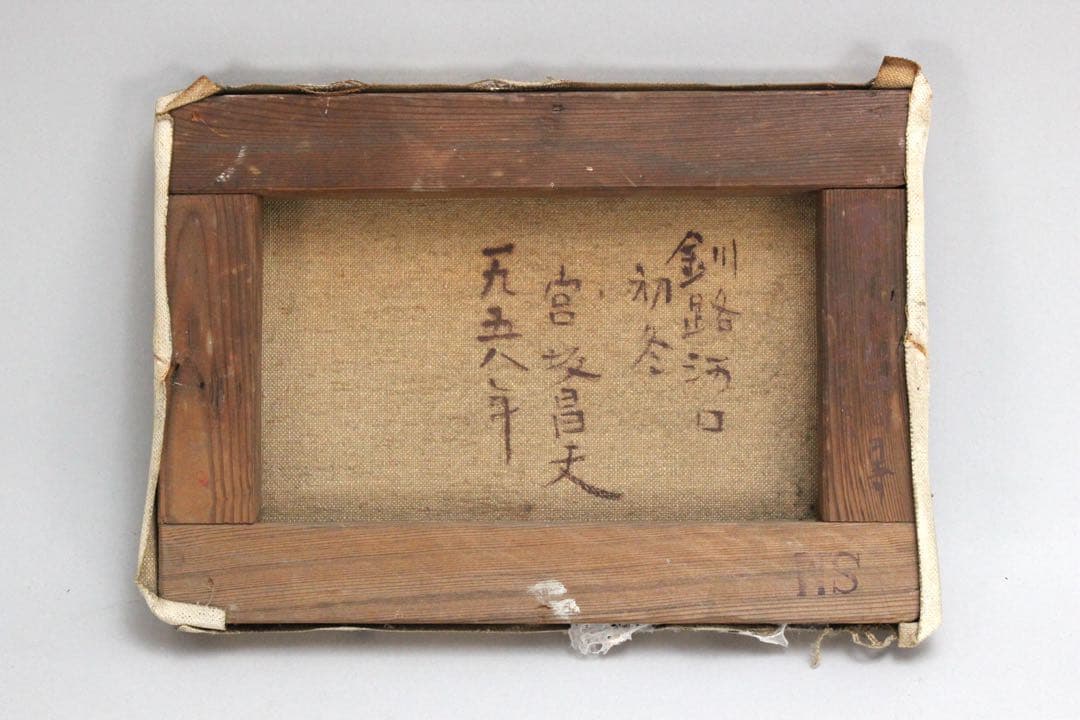 釧路河口
初冬
宮坂昌丈
一九五八年